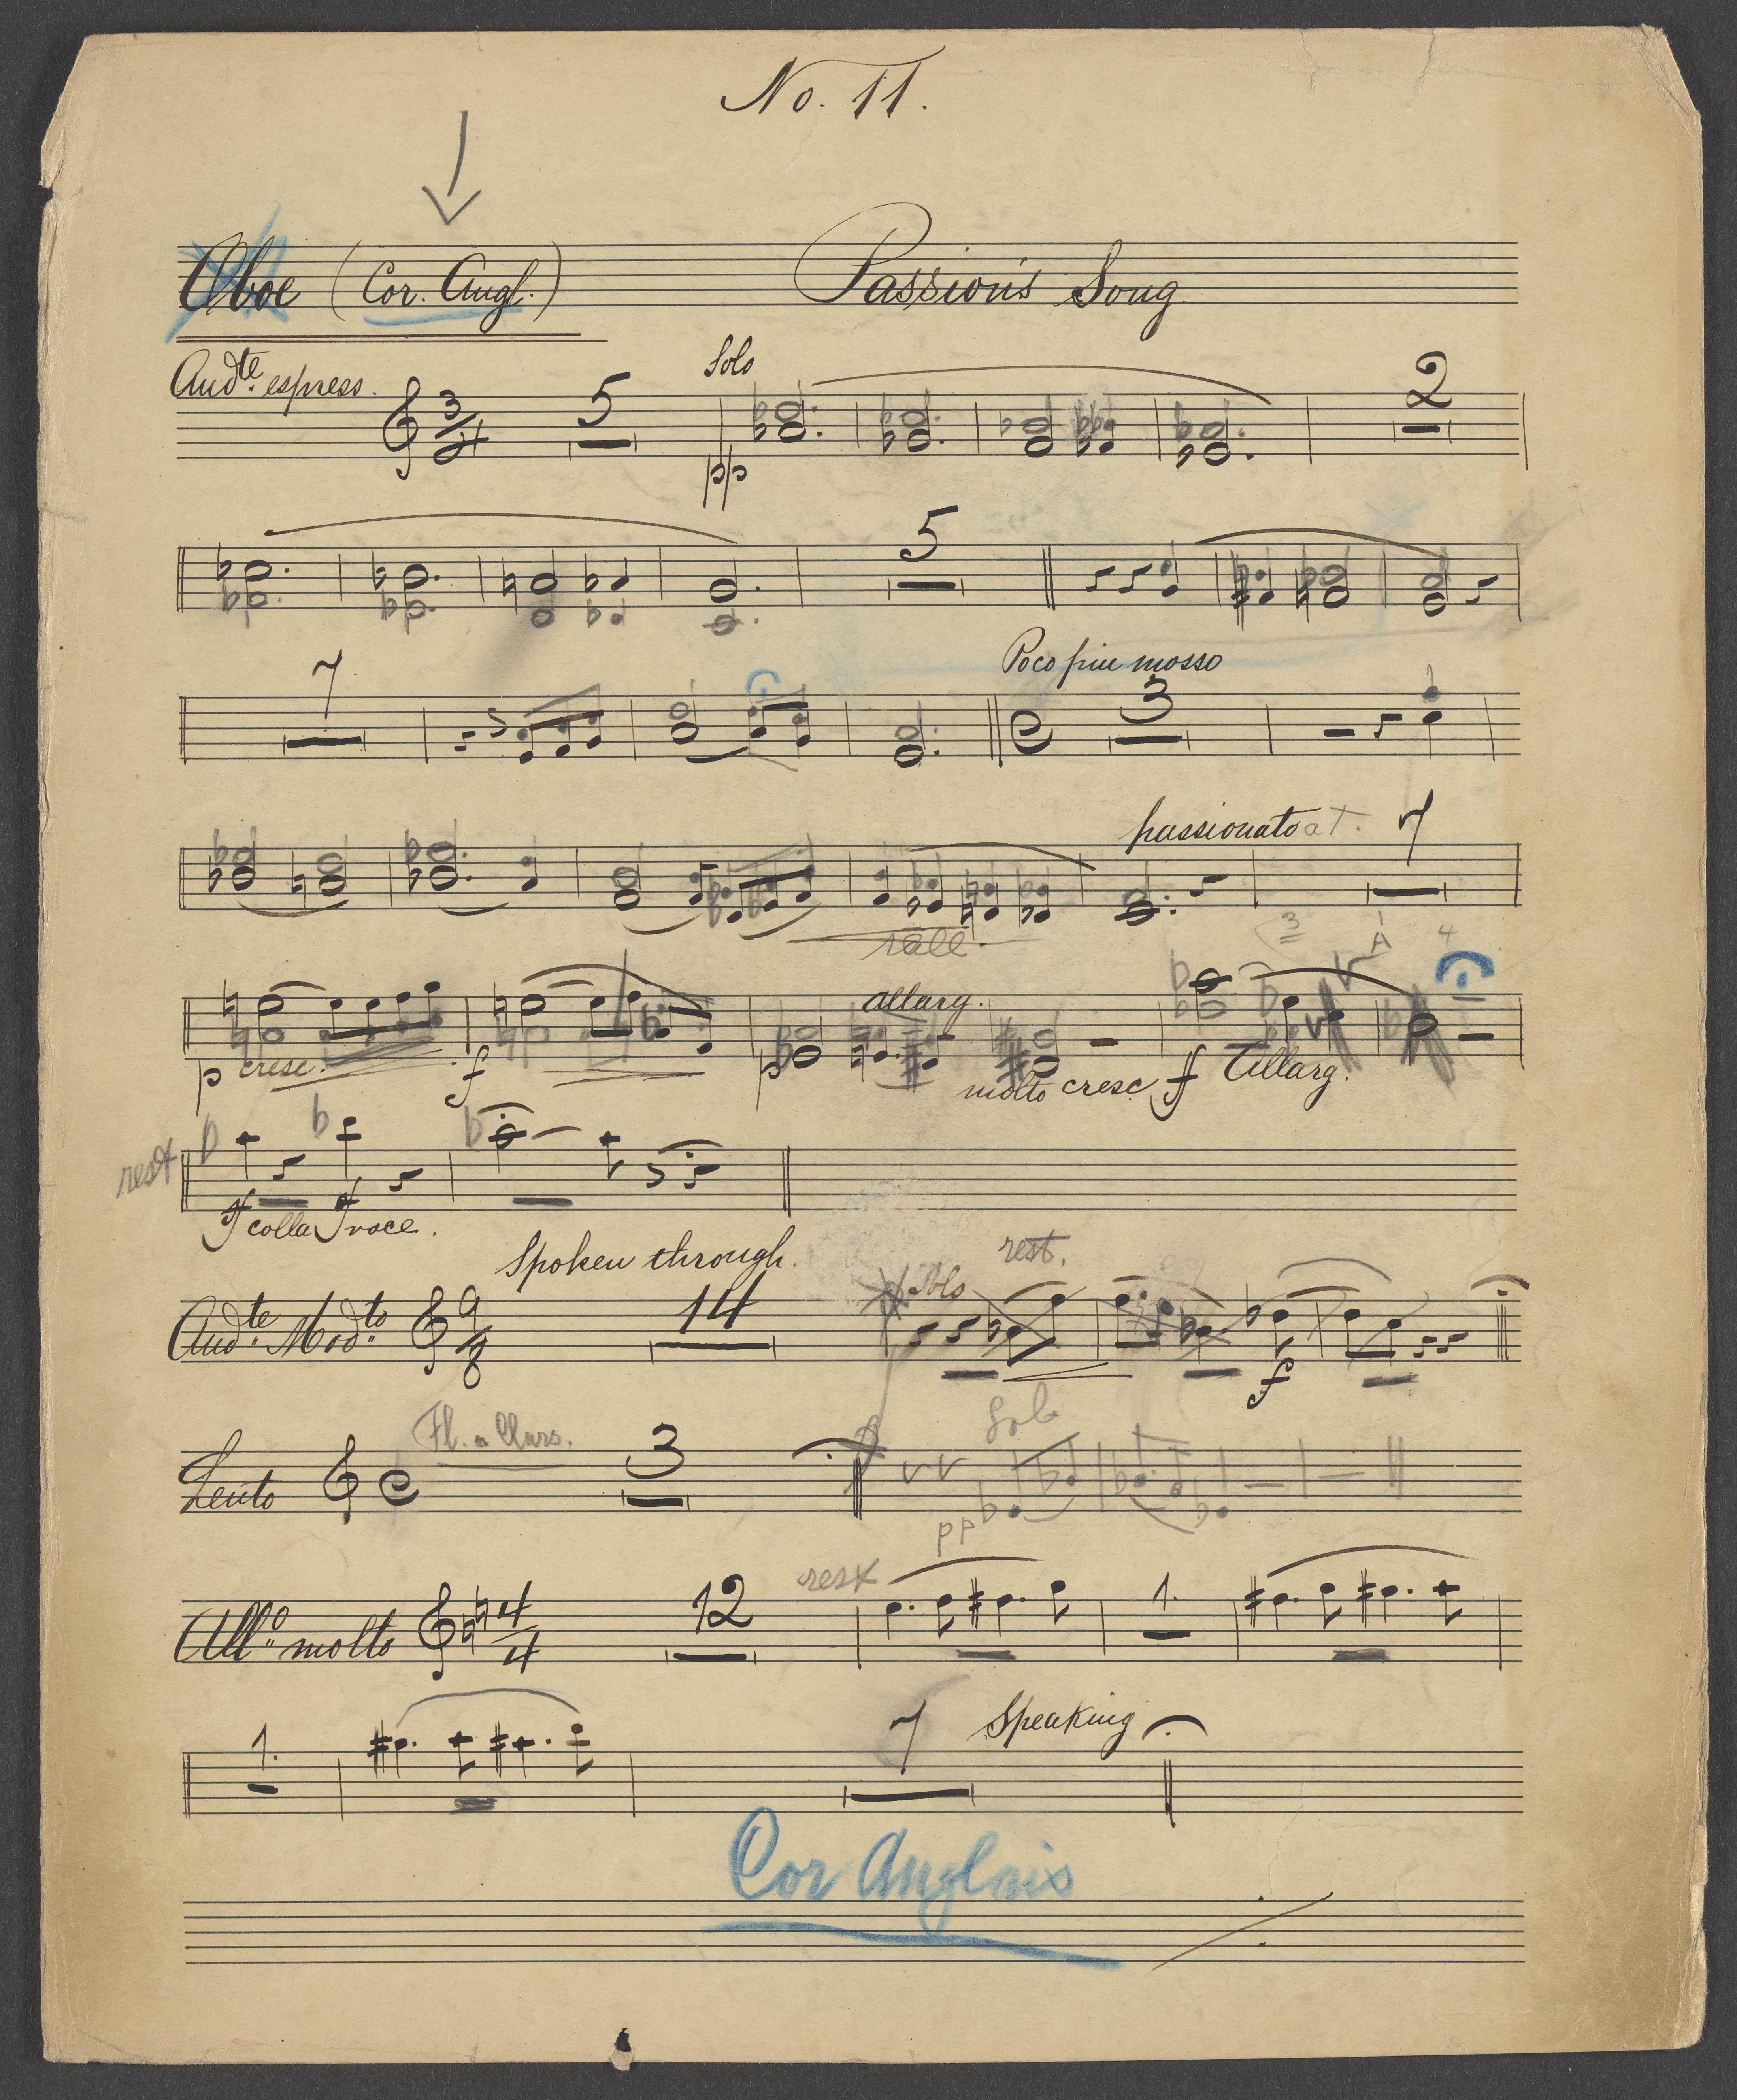 No. 11.
Oboe (Cor. Angl.) Passion's Song
Andte. espress. 3/4 5 Solo 2
pp
5
7 Poco piu mosso 3
passionato at. 7
rall. 3 A 4
allarg.
p cresc. f p molto cresc f Allarg.
rest
ff colla ff voce.
Spoken through. rest.
Andte. Modto. 9/8 14 Solo
f
Lento Fl. a Clars. 3 Solo
pp
rest
Allo. molto 4/4 12 1.
1. 7 Speaking
Cor Anglais